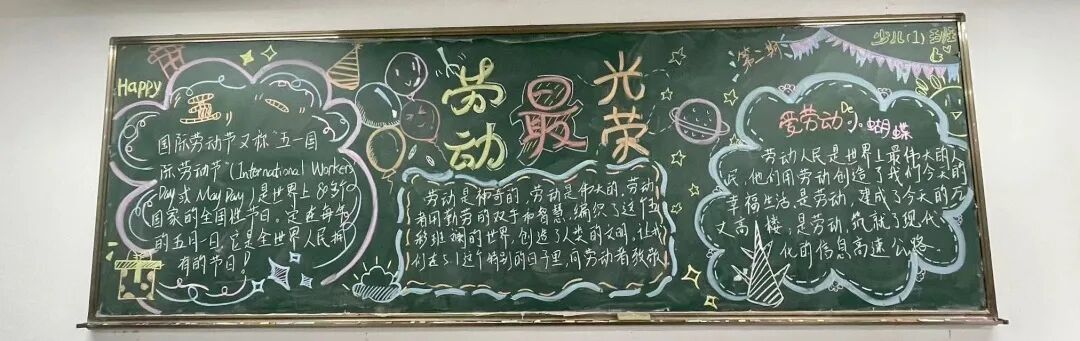 Happy
国际劳动节又称“五一国
际劳动节”(International Workers
Day或May Day),是世界上80多个
国家的全国性节日。定在每年
的五月一日。它是全世界人民拥
有的节日!
劳动
最
光荣
劳动是神奇的,劳动是伟大的,劳动
者用勤劳的双手和智慧,编织了这个五
彩班斓的世界,创造了人类的文明。让我
们在5.1这个特别的日子里,向劳动者致敬
第二期
少儿(1)班
爱劳动De小蝴蝶
劳动人民是世界上最伟大的人
民,他们用劳动创造了我们今天的
幸福生活,是劳动,建成了今天的万
丈高楼;是劳动,筑就了现代
化的信息高速公路。